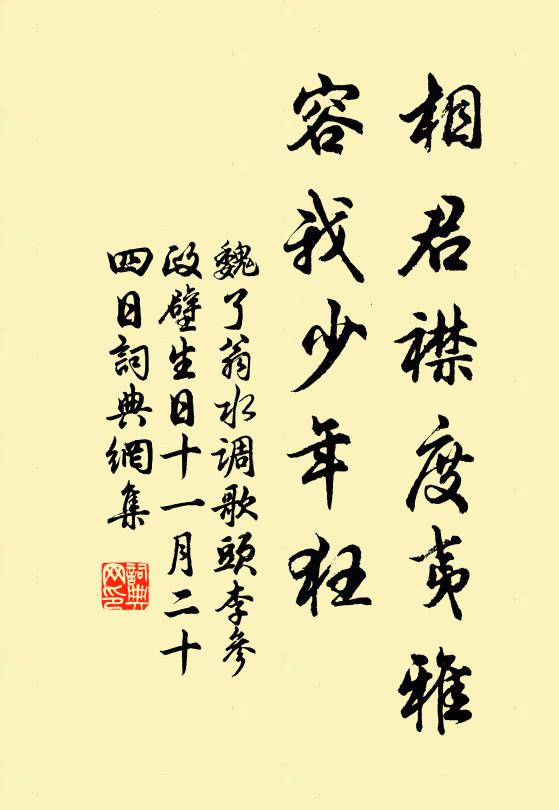 相君襟度夷雅
容我少年狂
魏了翁水调歌頭李參
政壁生日十一月二十
四日詞典網集
詞典网印